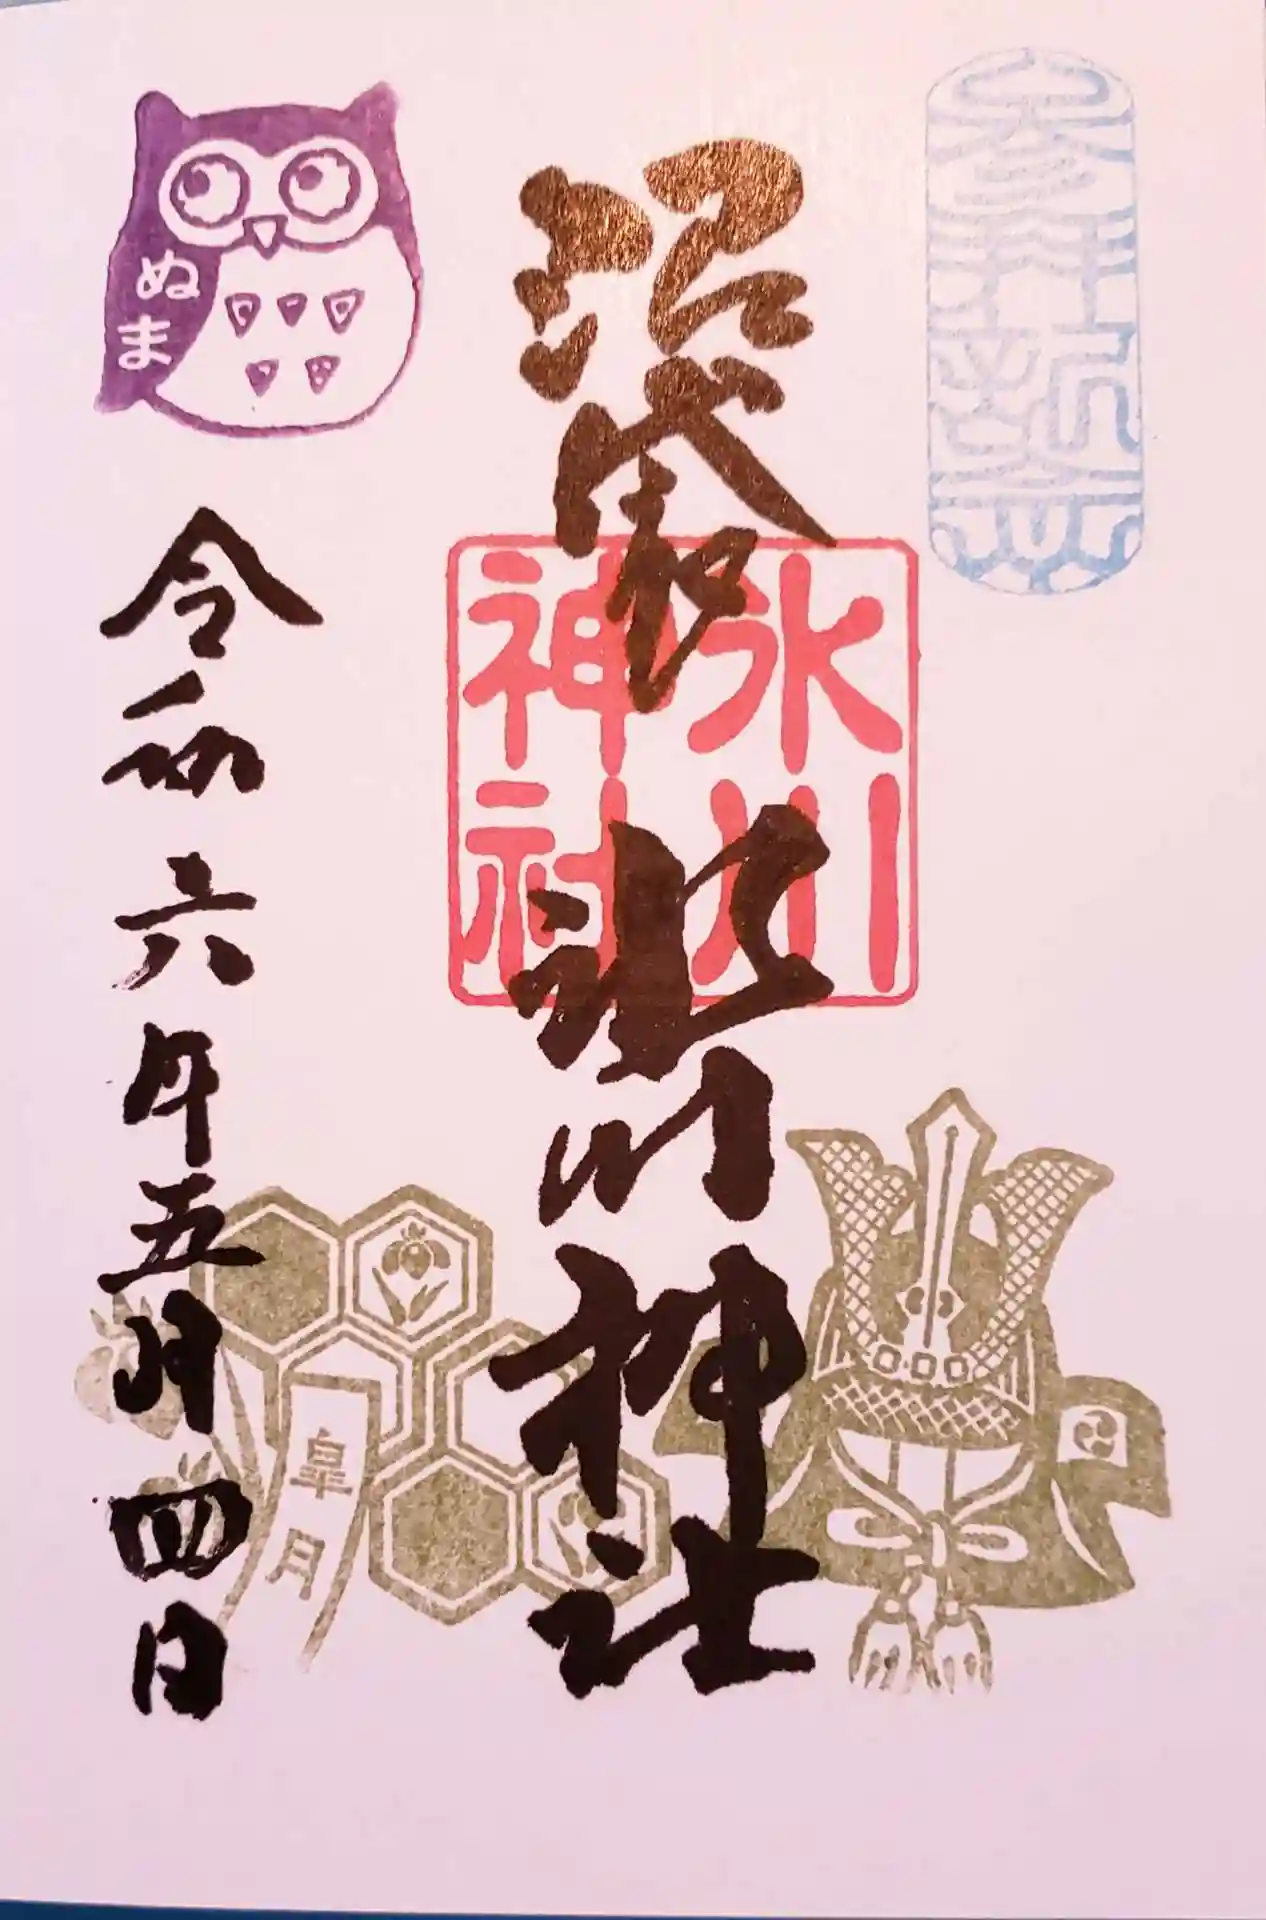 参拝祈祷
沼袋
氷川神社
氷川
神社
ぬま
令和六年五月四日
皐月